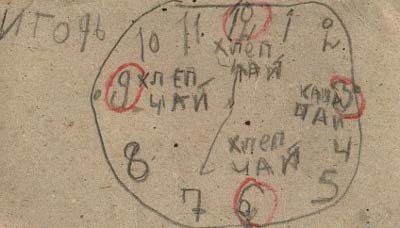 ИГОРЬ
12
11
1
10
2
ХЛЕП
ЧАЙ
9
ХЛЕП
ЧАЙ
3
КАША
ЧАЙ
ХЛЕП
ЧАЙ
4
8
5
7
6